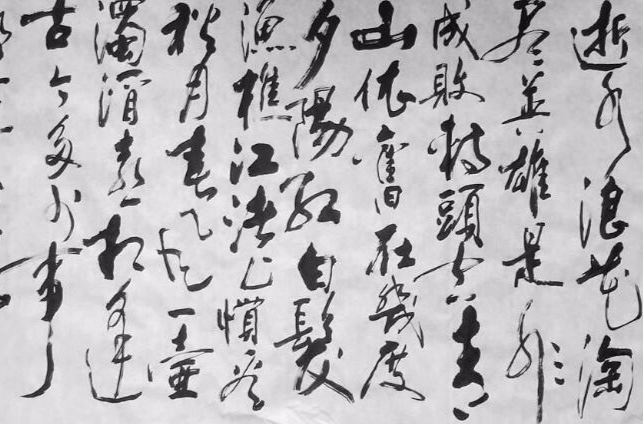 逝水浪花淘
尽英雄是非
成敗轉頭空青
山依舊在幾度
夕陽紅白髮
漁樵江渚上慣看
秋月春風一壺
濁酒喜相逢
古今多少事